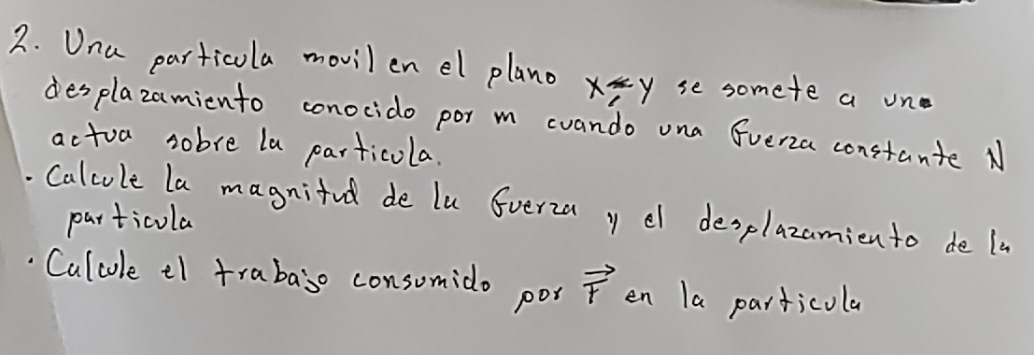 2. Una particula movil en el plano x, y se somete a un
desplazamiento conocido por m cuando una fuerza constante N
actua sobre la particula.
· Calcule la magnitud de la fuerza y el desplazamiento de la
particula
· Calcule el trabajo consumido por F en la particula